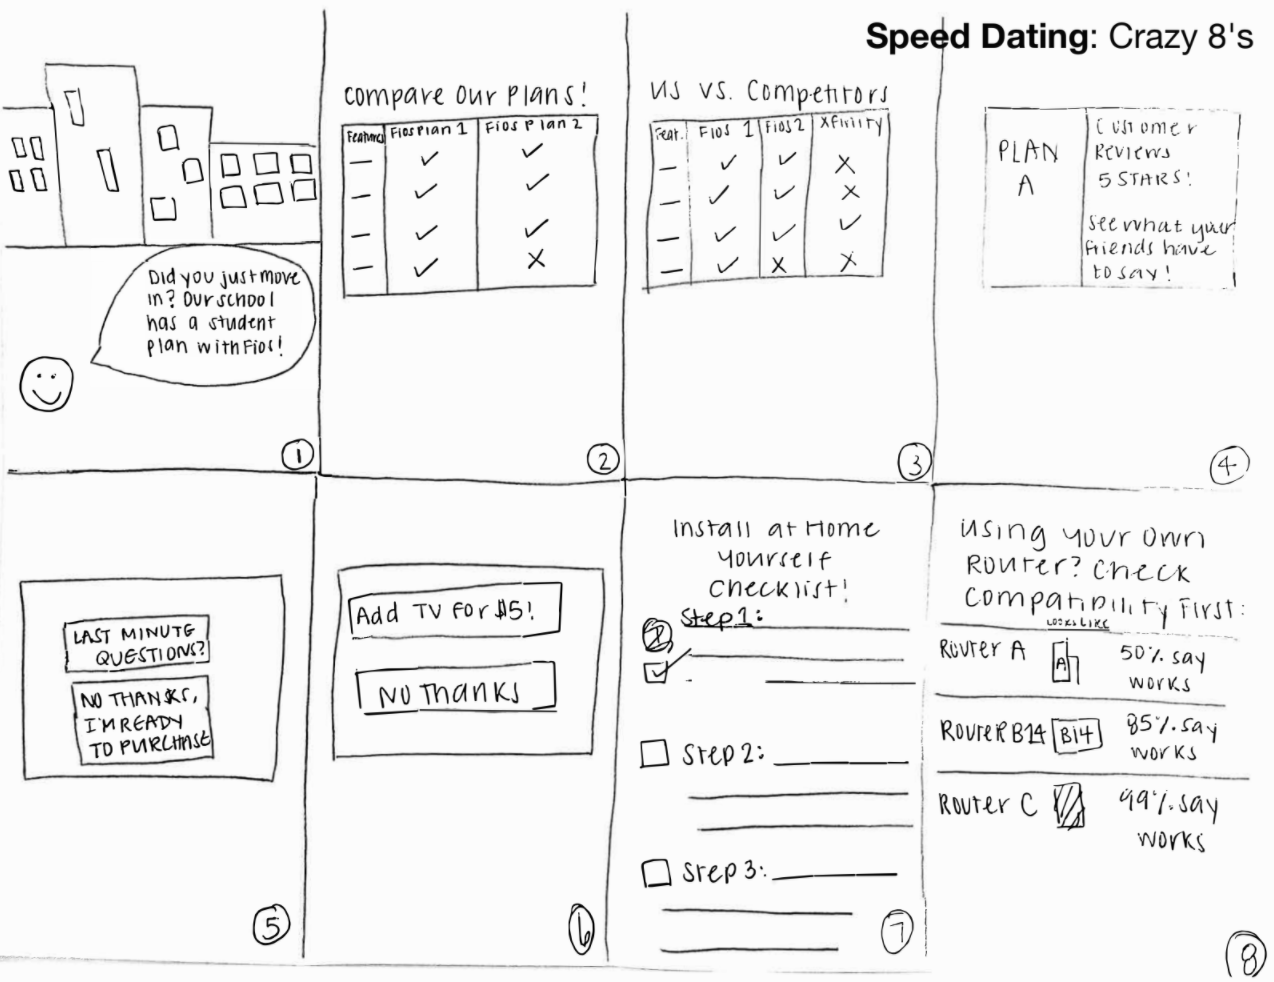 Speed Dating: Crazy 8's
Did you just move
in? Our school
has a student
plan with Fios!
1
Compare Our Plans!
Features Fios Plan 1 Fios Plan 2
2
US VS. Competitors
Feat. Fios 1 Fios 2 Xfinity
3
PLAN
A
Customer
Reviews
5 STARS!
See what your
friends have
to say!
4
LAST MINUTE
QUESTIONS?
NO THANKS,
I'M READY
TO PURCHASE
5
Add TV for $5!
No Thanks
6
Install at Home
Yourself
Checklist!
Step 1:
Step 2:
Step 3:
7
Using Your Own
Router? Check
Compatibility First:
LOOKS LIKE
Router A A 50% say
works
Router B14 B14 85% say
works
Router C 99% say
works
8